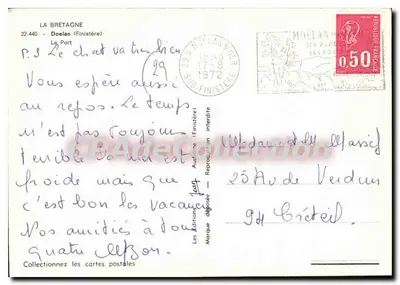 LA BRETAGNE
22.440 - Doelan (Finistère)
Le Port
P.S Le chat va très bien
Vous espère aussi
au repos. Le temps
n'est pas toujours
terrible la mer est
froide mais que
c'est bon les vacances
Nos amitiés à tous
quatre
Collectionnez les cartes postales
Les Editions Jack Audierne (Finistère)
Marque déposée - Reproduction interdite
29
1972
SUD FINISTERE
MOELAN S MER
0,50
REPUBLIQUE FRANCAISE
25 Av de Verdun
94 Créteil
CPADeCollection